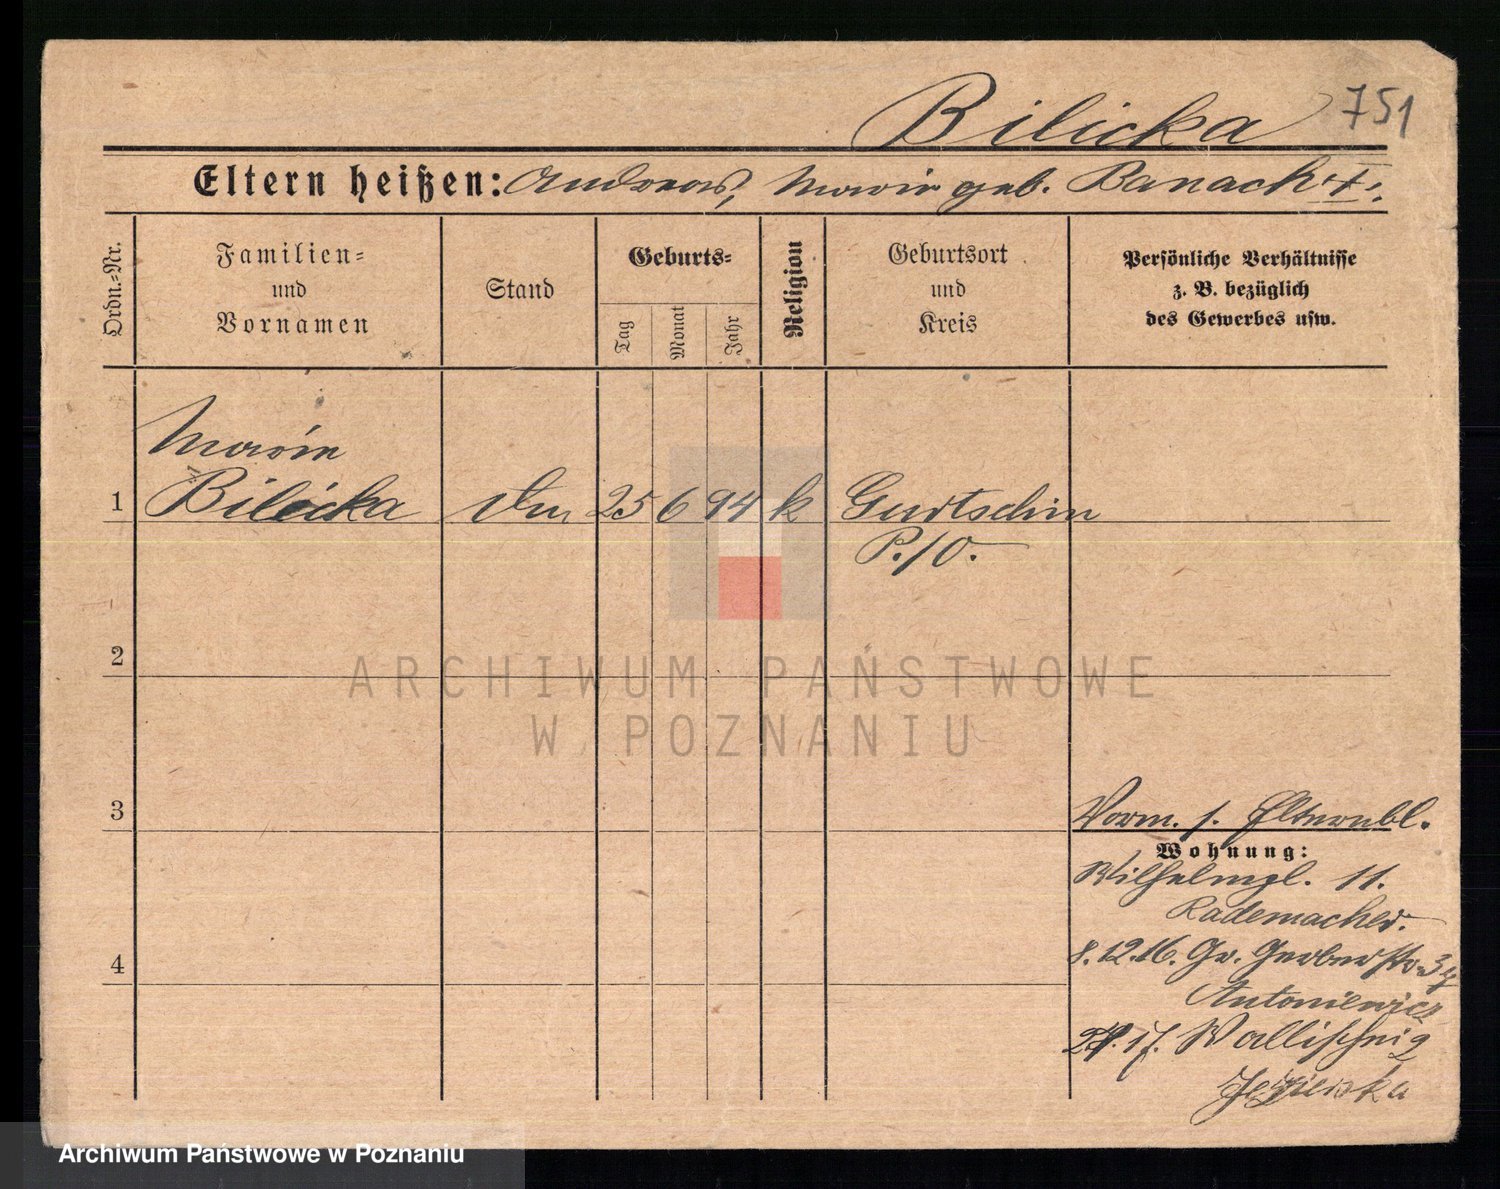 Bilicka 751
Eltern heißen: Andreas, Marie geb. Banach
Ordn.-Nr.
Familien-
und
Vornamen
Stand
Geburts-
Tag
Monat
Jahr
Religion
Geburtsort
und
Kreis
Persönliche Verhältnisse
z. B. bezüglich
des Gewerbes usw.
Marie
1 Bilicka 25 6 94 k Gurtschin
P./O.
2
3
4
Vorm. s. Elternbl.
Wohnung:
Wilhelmpl. 11.
Rademacher.
8.12.16. Gr. Gerberstr.
Antoniewicz
17. Wallischei
ARCHIWUM PAŃSTWOWE
W POZNANIU
Archiwum Państwowe w Poznaniu